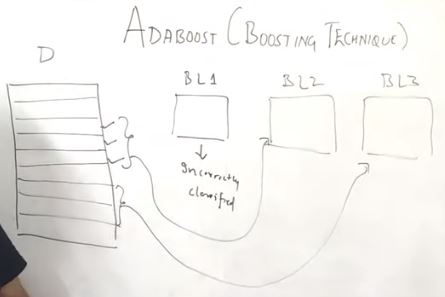 ADABOOST (BOOSTING TECHNIQUE)
D
BL1 BL2 BL3
Incorrectly
classified